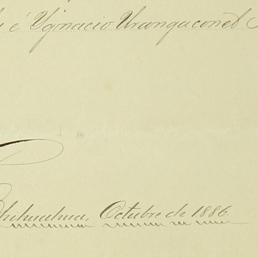 é Ygnacio Uranga con el
Chihuahua, Octubre de 1886.